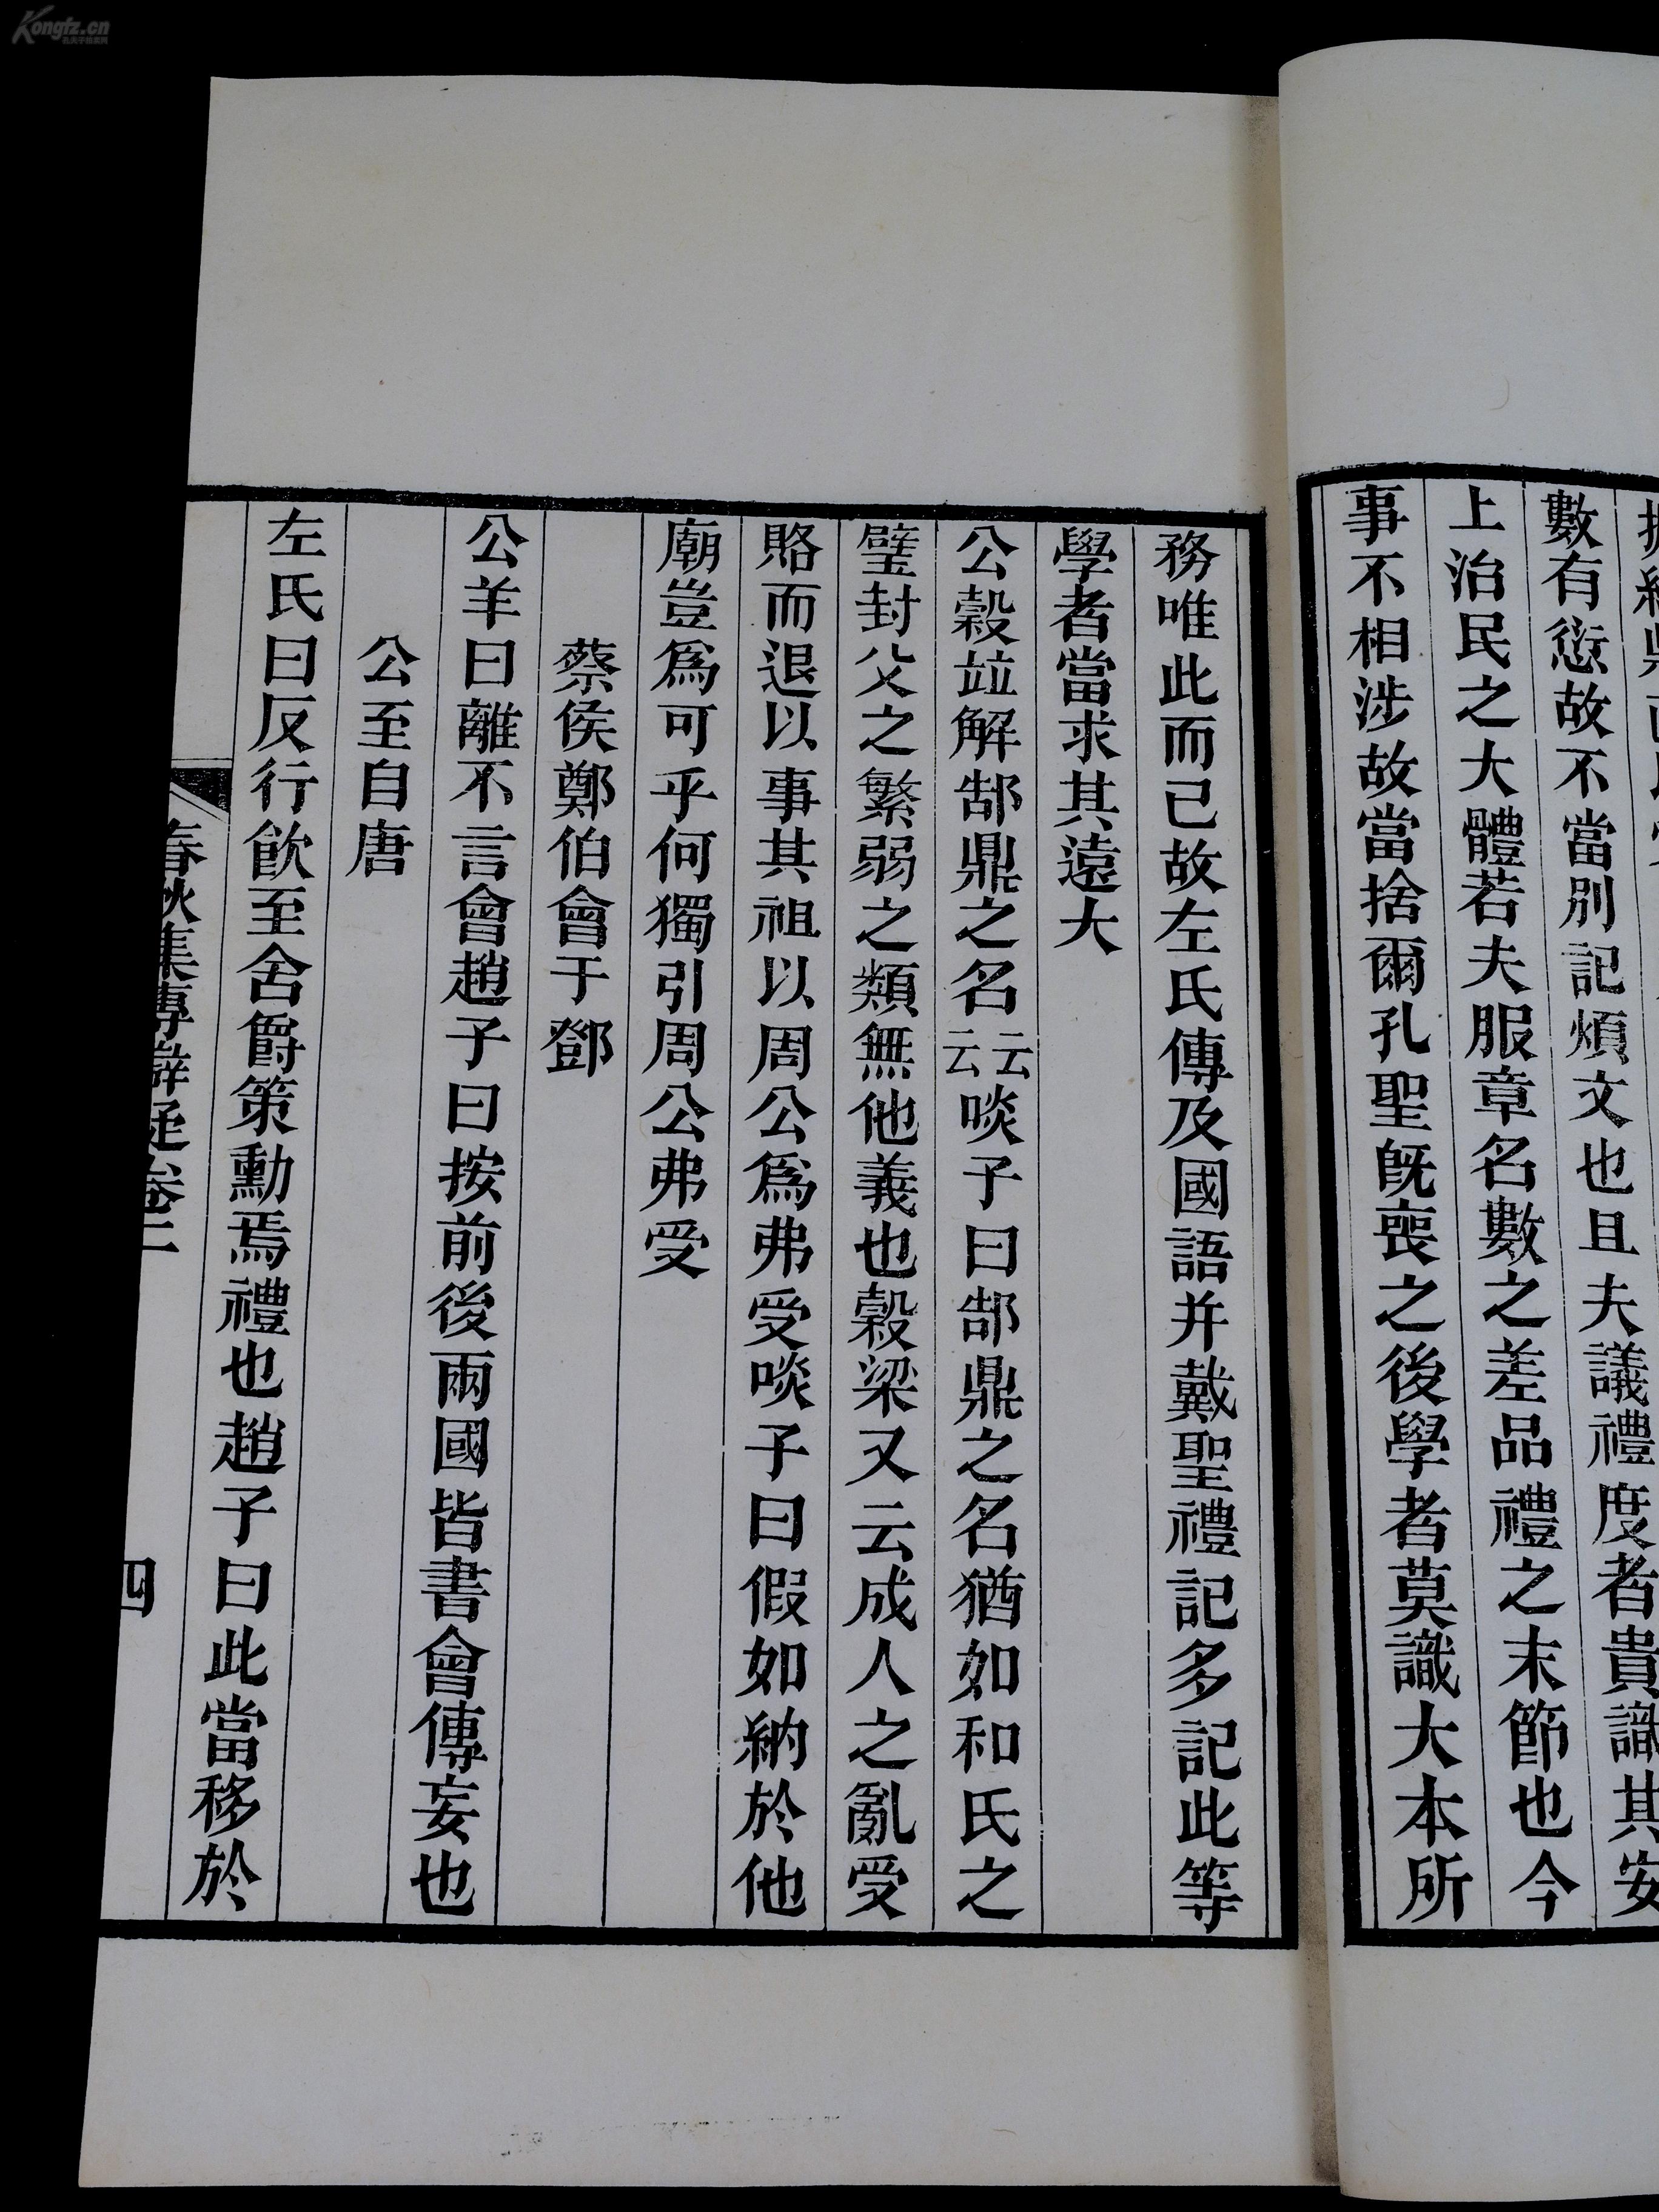 數有愆故不當別記煩文也且夫議禮度者貴識其安
上治民之大體若夫服章名數之差品禮之末節也今
事不相涉故當捨爾孔聖既喪之後學者莫識大本所
務唯此而已故左氏傳及國語并戴聖禮記多記此等
學者當求其遠大
公穀竝解郜鼎之名云云啖子曰郜鼎之名猶如和氏之
璧封父之繁弱之類無他義也穀梁又云成人之亂受
賂而退以事其祖以周公爲弗受啖子曰假如納於他
廟豈爲可乎何獨引周公弗受
蔡侯鄭伯會于鄧
公羊曰離不言會趙子曰按前後兩國皆書會傳妄也
公至自唐
左氏曰反行飮至舍爵策勳焉禮也趙子曰此當移於
春秋集傳辯疑卷二
四
Kongfz.cn
孔夫子旧书网